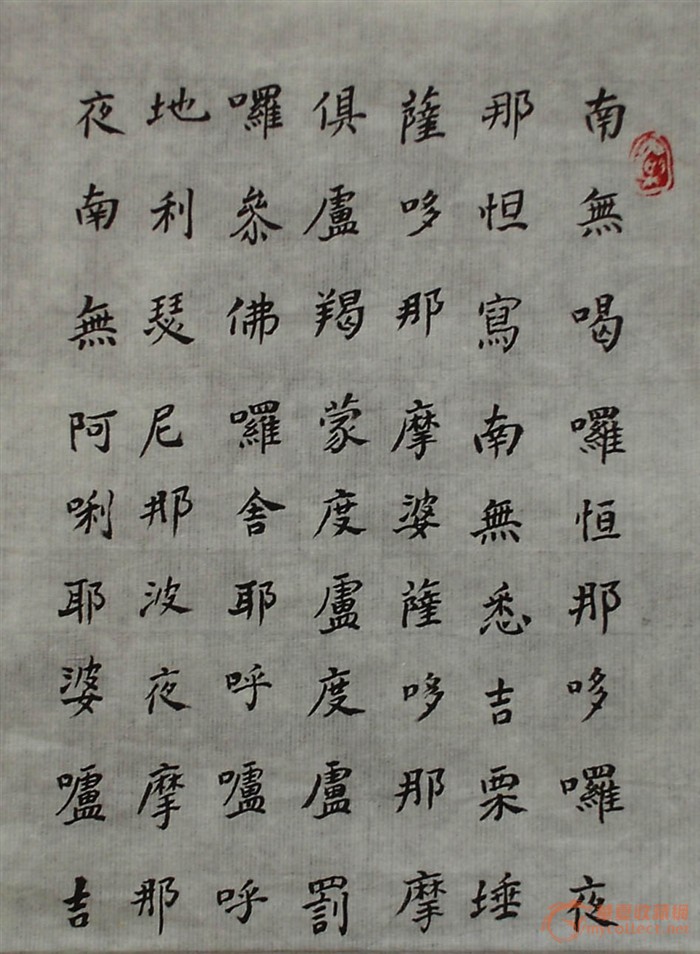 南無喝囉恒那哆囉夜
那怛寫南無悉吉栗埵
薩哆那摩婆薩哆那摩
俱盧羯蒙度盧度盧罰
囉參佛囉舍耶呼嚧呼
地利瑟尼那波夜摩那
夜南無阿唎耶婆嚧吉
mycollect.net